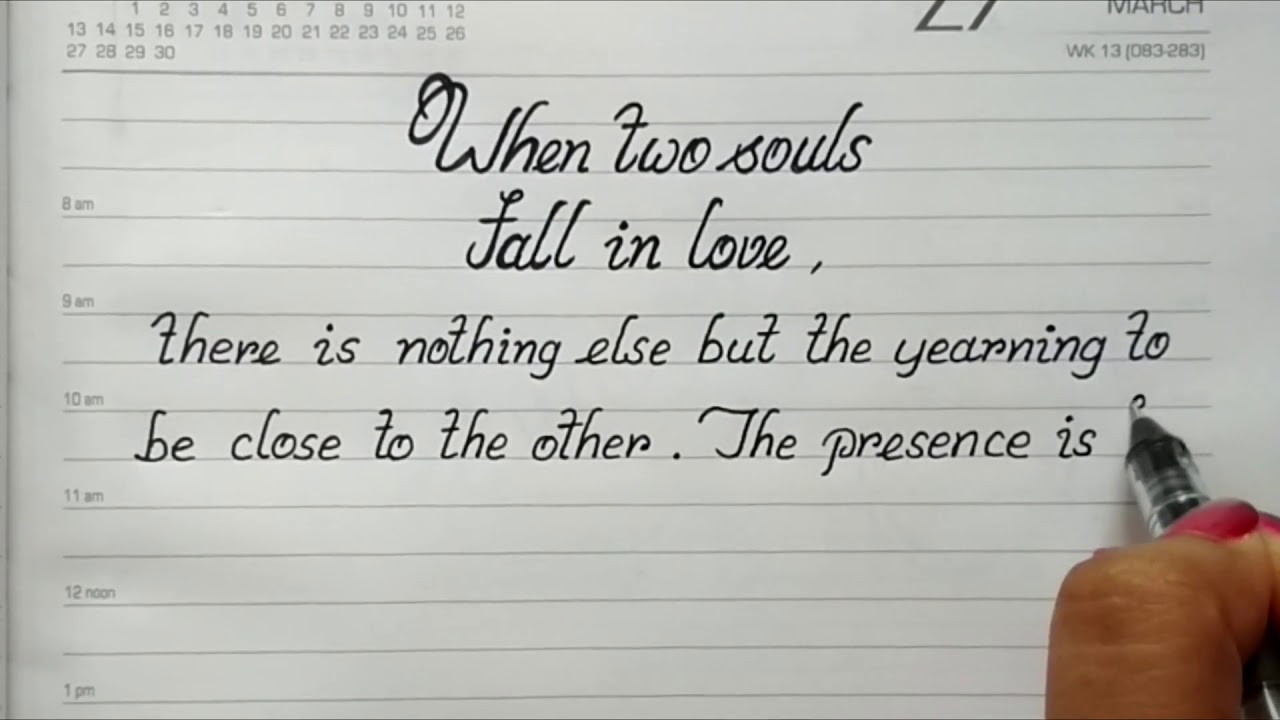 1 2 3 4 5 6 7 8 9 10 11 12
13 14 15 16 17 18 19 20 21 22 23 24 25 26
27 28 29 30
27 MARCH
WK 13 (083-283)
When two souls
8 am
fall in love,
9 am
there is nothing else but the yearning to
10 am
be close to the other. The presence is
11 am
12 noon
1 pm